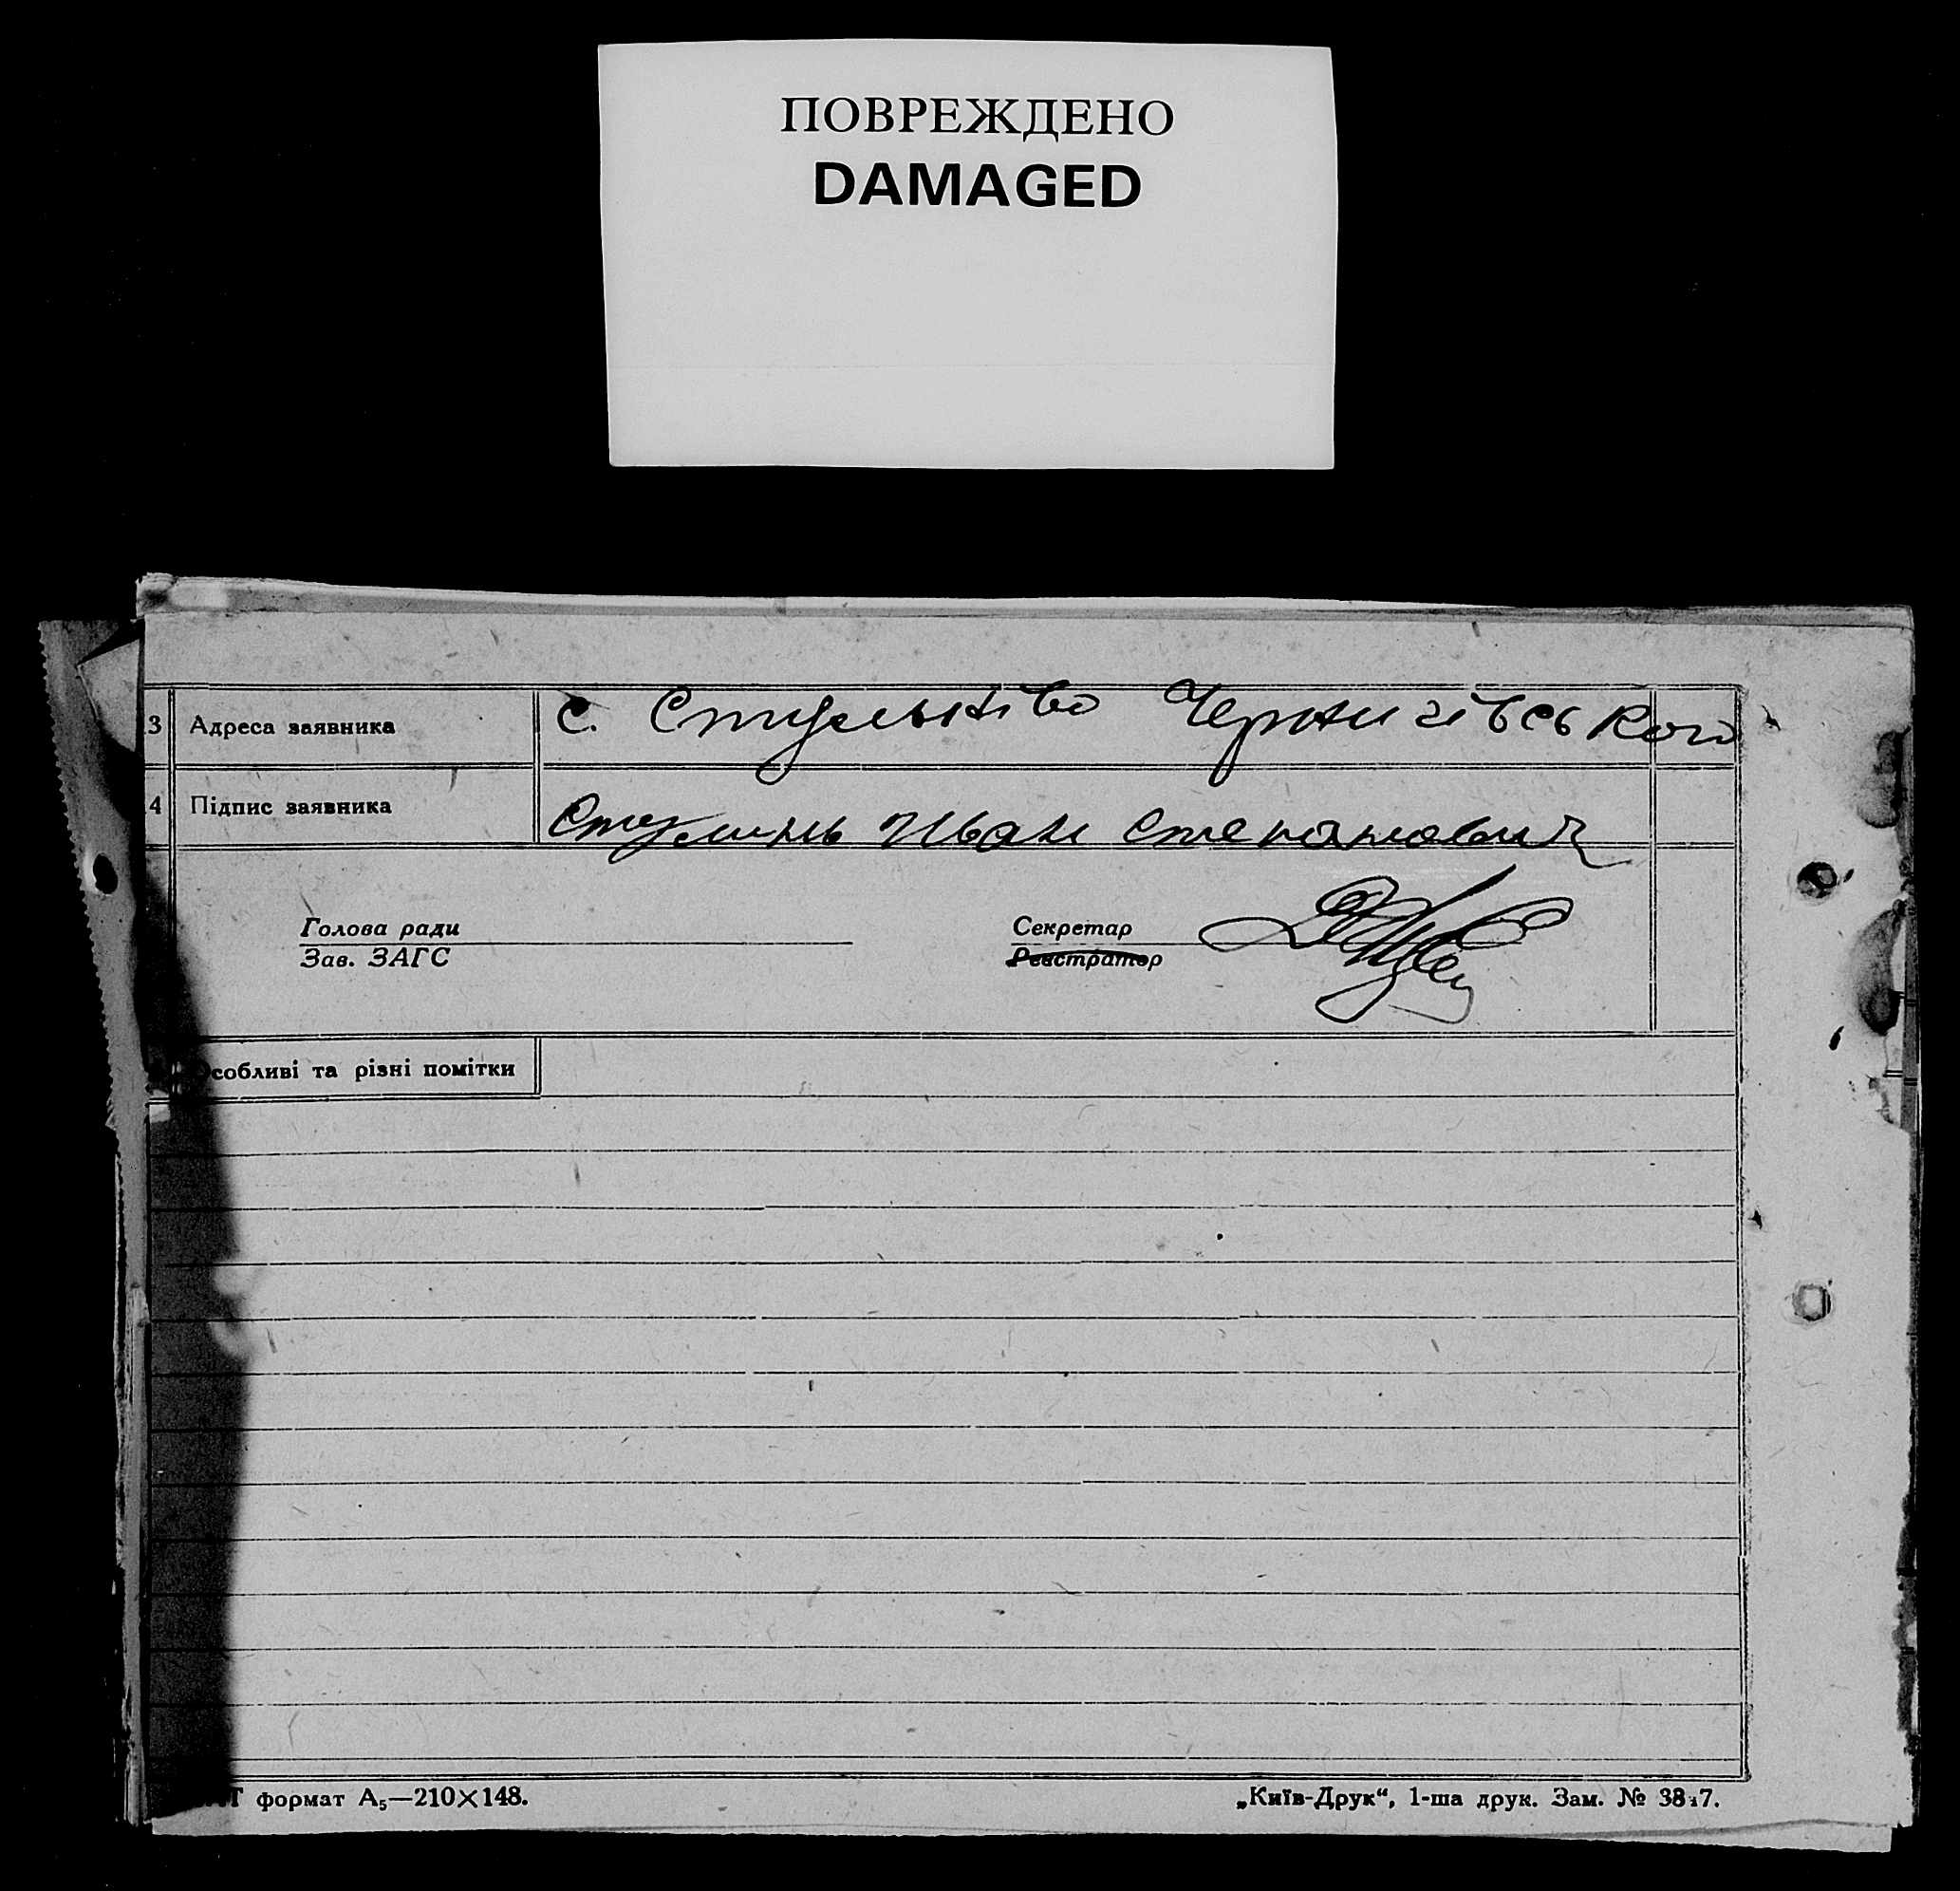 ПОВРЕЖДЕНО
DAMAGED
3 Адреса заявника с. Чернигівського
4 Підпис заявника Иван Степанович
Голова ради
Зав. ЗАГС
Секретар
Реєстратор
собливі та різні помітки
Т формат А₅—210×148.
„Київ-Друк“, 1-ша друк. Зам. №